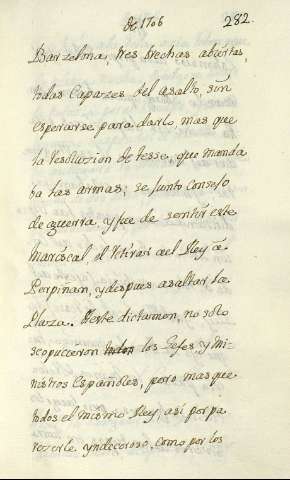 de 1706 282.
Barzelona, tres brechas abiertas,
todas Capazes del asalto, sin
esperarse para darlo, mas que
la resoluzion de tesse, que manda
ba las armas; se junto consejo
de guerra, y fue de sentir este
mariscal, el retirar al Rey â
Perpiñan, y despues asaltar la
Plaza. A este dictamen, no solo
se opucieron todos los Gefes, y Mi-
nistros Españoles, pero mas que
todos el mismo Rey, asi por pa
rezerle yndecoroso, como por los